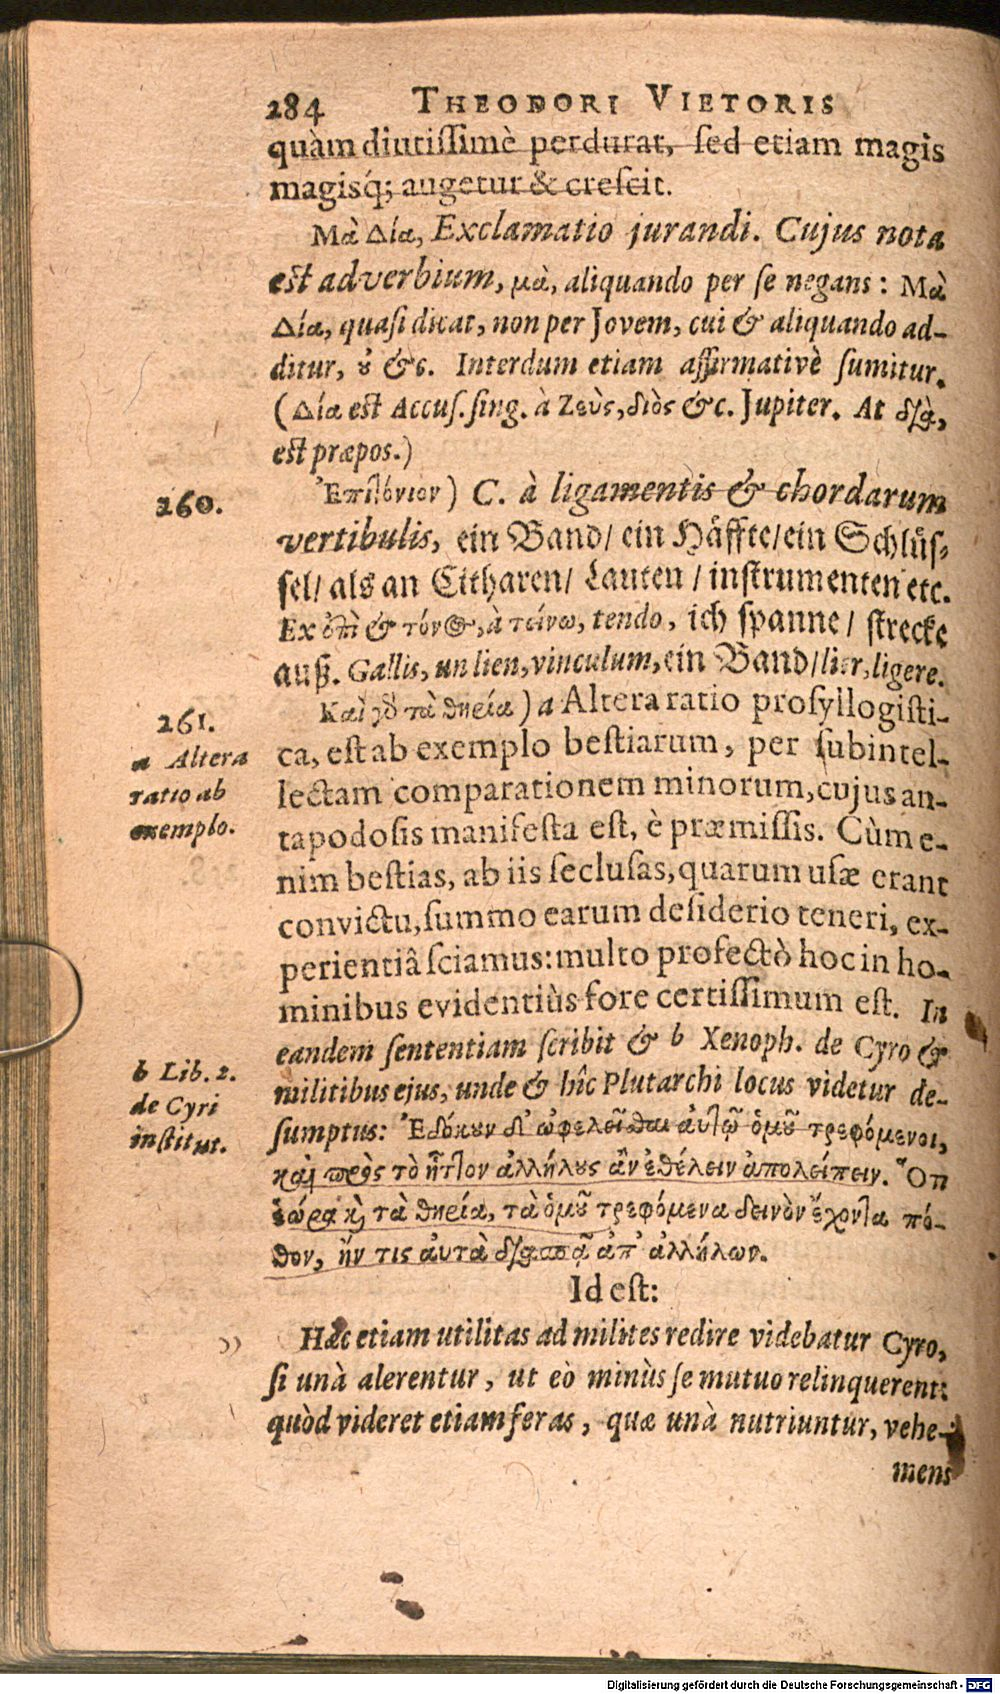 284 THEODORI VIETORIS
quàm diutissimè perdurat, sed etiam magis
magisq́; augetur & crescit.
Μὰ Δία, Exclamatio jurandi. Cujus nota
est adverbium, μὰ, aliquando per se negans: Μὰ
Δία, quasi dicat, non per Jovem, cui & aliquando ad-
ditur, ȣ̓ &c. Interdum etiam affirmativè sumitur.
(Δία est Accus. sing. à Ζεὺς, διὸς &c. Jupiter. At διὰ,
est præpos.)
260.
Ἐπιτόνιον) C. à ligamentis & chordarum
vertibulis, ein Band/ ein Häffte/ ein Schlüs-
sel/ als an Citharen/ Lauten / instrumenten etc.
Ex ἐπὶ & τόνος, à τείνω, tendo, ich spanne/ strecke
auß. Gallis, un lien, vinculum, ein Band/ lier, ligere.
261.
Καὶ γὸ τὰ θηρία) a Altera ratio prosyllogisti-
a Altera
ratio ab
exemplo.
ca, est ab exemplo bestiarum, per subintel-
lectam comparationem minorum, cujus an-
tapodosis manifesta est, è præmissis. Cùm e-
nim bestias, ab iis seclusas, quarum usæ erant
convictu, summo earum desiderio teneri, ex-
perientiâ sciamus: multo profectò hoc in ho-
minibus evidentiùs fore certissimum est. In
eandem sententiam scribit & b Xenoph. de Cyro &
b Lib. 2.
de Cyri
institut.
militibus ejus, unde & hîc Plutarchi locus videtur de-
sumptus: Ἐδόκουν δ' ὠφελεῖσθαι αὐτῷ ὁμοῦ τρεφόμενοι,
καὶ πρὸς τὸ ἧττον ἀλλήλους ἂν ἐθέλειν ἀπολείπειν. Ὅπ
ἑώρα καὶ τὰ θηρία, τὰ ὁμοῦ τρεφόμενα δεινὸν ἔχοντα πό-
θον, ἤν τις αὐτὰ διασπᾷ ἀπ' ἀλλήλων.
Id est:
Hæc etiam utilitas ad milites redire videbatur Cyro,
si unà alerentur, ut eò minùs se mutuo relinquerent:
quòd videret etiam feras, quæ unà nutriuntur, vehe-
mens
Digitalisierung gefördert durch die Deutsche Forschungsgemeinschaft - DFG